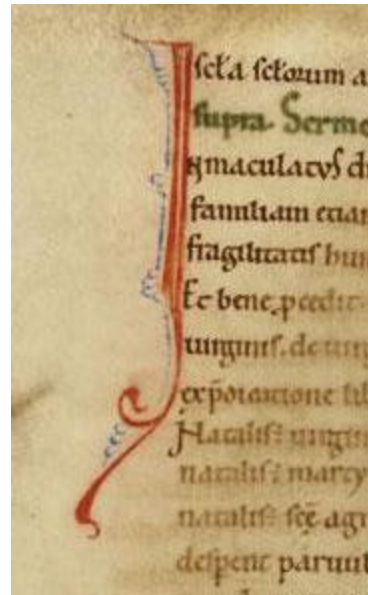 I
scła scłorum a
supra. Sermo
Immaculatus
familiam etiam
fragilitatis hum
Et bene pcedit
uirginis. de uirg
expositione lib
Natalis÷ uirgin
natalis÷ marty
natalis÷ scē agn
despexit paruul